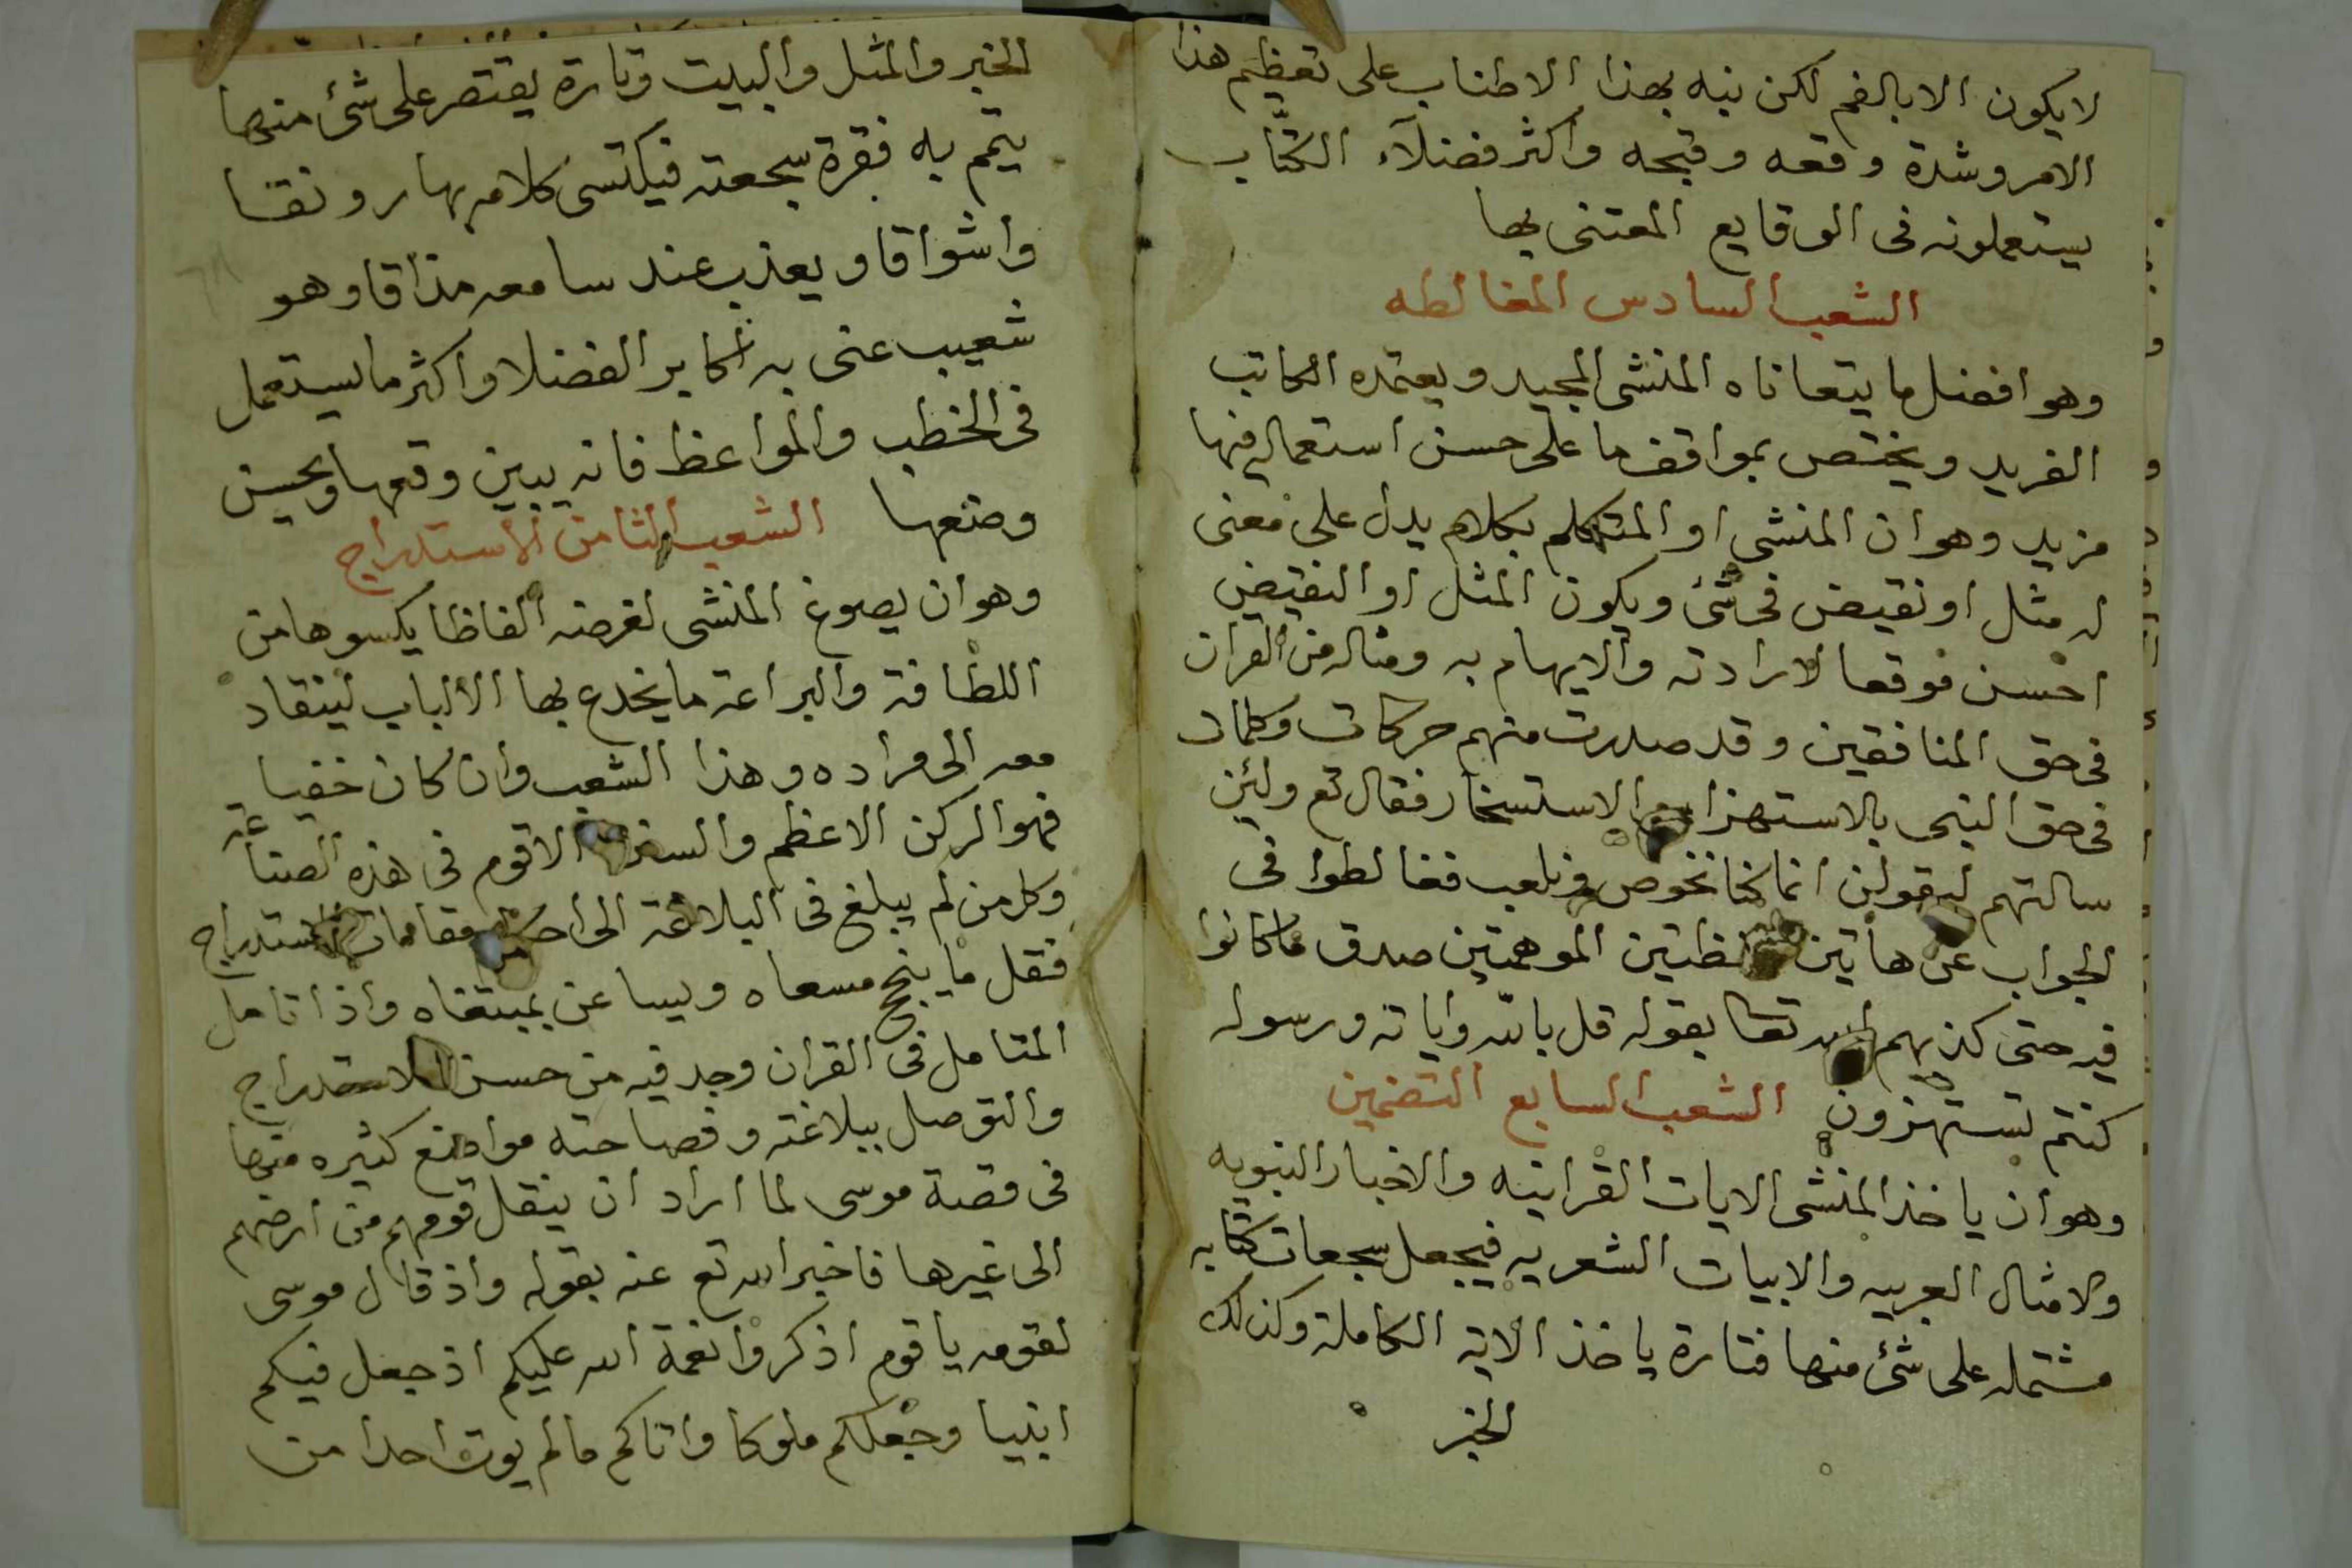 لا يكون الا بالفم لكن نبه بهذا الاطناب على تعظيم هذا
الامر وشدة وقعه وقبحه واكثر فضلآء الكتّاب
يستعملونه فى الوقايع المعتنى بها
الشعب السادس المغالطه
وهو افضل ما يتعاناه المنشى المجيد ويعتمده الكاتب
الفريد ويختص بمواقف ما على حسن استعماله فيها
مزيد وهو ان المنشى او المتكلم بكلام يدل على معنى
له مثل او نقيض فى شئ ويكون المثل او النقيض
احسن موقعا لارادته والايهام به ومثاله من القران
فى حق المنافقين وقد صدرت منهم حركات وكلمات
فى حق النبى بالاستهزا والاستسخار فقال تع ولئن
سالتهم ليقولن انما كنا نخوض ونلعب فغالطوا فى
الجواب عن هاتين اللفظتين الموهمتين صدق ما كانوا
فيه حتى كذبهم الله تعا بقوله قل بالله واياته ورسوله
كنتم تستهزون الشعب السابع التضمين
وهو ان ياخذ المنشى الايات القرانيه والاخبار النبويه
والامثال العربيه والابيات الشعريه فيجعل سجعات كتابه
مشتمله على شئ منها فتارة ياخذ الاية الكاملة وكذلك
الخبر
الخبر والمثل والبيت وتارة يقتصر على شئ منها
يتمم به فقرة سجعته فيكتسى كلامه بها رونقا
واشواقا ويعذب عند سامعه مذاقا وهو
شعيب عنى به اكابر الفضلا واكثر ما يستعمل
فى الخطب والمواعظ فانه يبين وقعها ويحسن
وضعها الشعب الثامن الاستدراج
وهو ان يصوغ المنشى لغرضه الفاظا يكسوها من
اللطافة والبراعة ما يخدع بها الالباب لينقاد
معه الى مراده وهذا الشعب وان كان خفيا
فهو الركن الاعظم الاقوم فى هذه الصناعة
وكل من لم يبلغ فى البلاغة الى مقامات الاستدراج
فقل ما ينجح مسعاه ويساعن بمبتغاه واذا تامل
المتامل فى القران وجد فيه من حسن الاستدراج
والتوصل ببلاغته وفصاحته مواضع كثيره منها
فى قصة موسى لما اراد ان ينقل قومهم من ارضهم
الى غيرها فاخبر الله تع عنه بقوله واذ قال موسى
لقومه يا قوم اذكروا نعمة الله عليكم اذ جعل فيكم
انبيا وجعلكم ملوكا واتاكم ما لم يوت احدا من